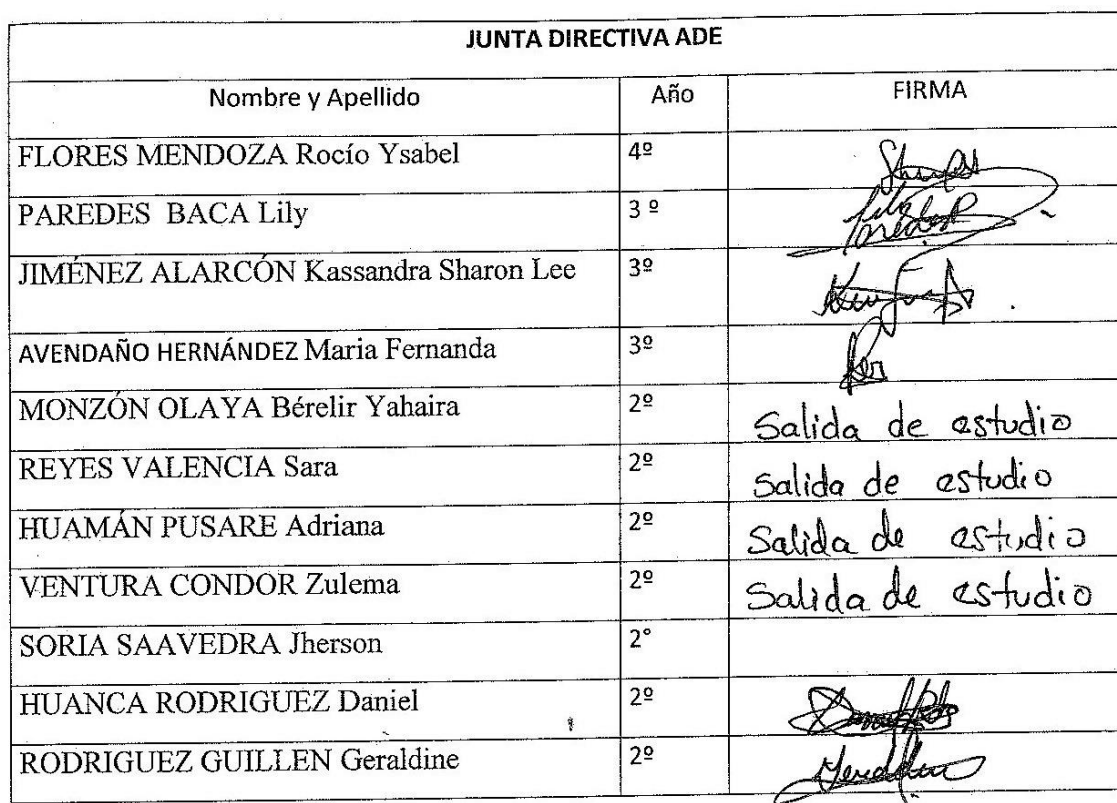 JUNTA DIRECTIVA ADE
Nombre y Apellido Año FIRMA
FLORES MENDOZA Rocío Ysabel 4º
PAREDES BACA Lily 3 º
JIMÉNEZ ALARCÓN Kassandra Sharon Lee 3º
AVENDAÑO HERNÁNDEZ Maria Fernanda 3º
MONZÓN OLAYA Bérelir Yahaira 2º Salida de estudio
REYES VALENCIA Sara 2º Salida de estudio
HUAMÁN PUSARE Adriana 2º Salida de estudio
VENTURA CONDOR Zulema 2º Salida de estudio
SORIA SAAVEDRA Jherson 2°
HUANCA RODRIGUEZ Daniel 2º
RODRIGUEZ GUILLEN Geraldine 2º